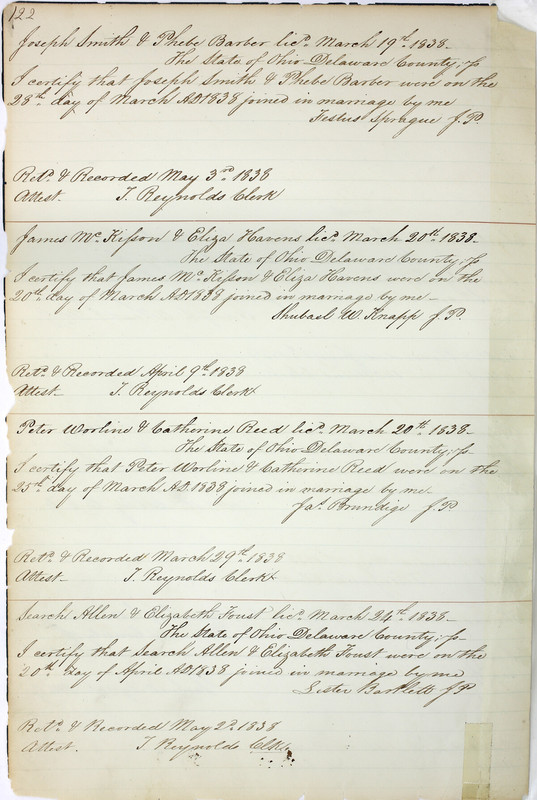 122
Joseph Smith & Phebe Barber licd. March 19th. 1838-
The State of Ohio Delaware County, ss
I certify that Joseph Smith & Phebe Barber were on the
28th. day of March AD 1838 joined in marriage by me
Festus Sprague J. P.
Retd. & Recorded May 3rd. 1838
Attest. T. Reynolds Clerk
James Mc.Kisson & Eliza Havens licd. March 20th. 1838-
The State of Ohio Delaware County, ss
I certify that James Mc.Kisson & Eliza Havens were on the
20th. day of March AD 1838 joined in marriage by me-
Shubael W. Knapp J. P.
Retd. & Recorded April 9th. 1838
Attest- T. Reynolds Clerk
Peter Worline & Catherine Reed licd. March 20th. 1838-
The State of Ohio Delaware County, ss-
I certify that Peter Worline & Catherine Reed were on the
25th. day of March AD. 1838 joined in marriage by me-
Jas. Brundige J. P.
Retd. & Recorded March 29th. 1838
Attest- T. Reynolds Clerk
Search Allen & Elizabeth Foust licd. March 24th. 1838-
The State of Ohio Delaware County, ss-
I certify that Search Allen & Elizabeth Foust were on the
20th. day of April AD 1838 joined in marriage by me
Lester Bartlett J P.
Retd. & Recorded May 2d. 1838
Attest. T Reynolds Clk.